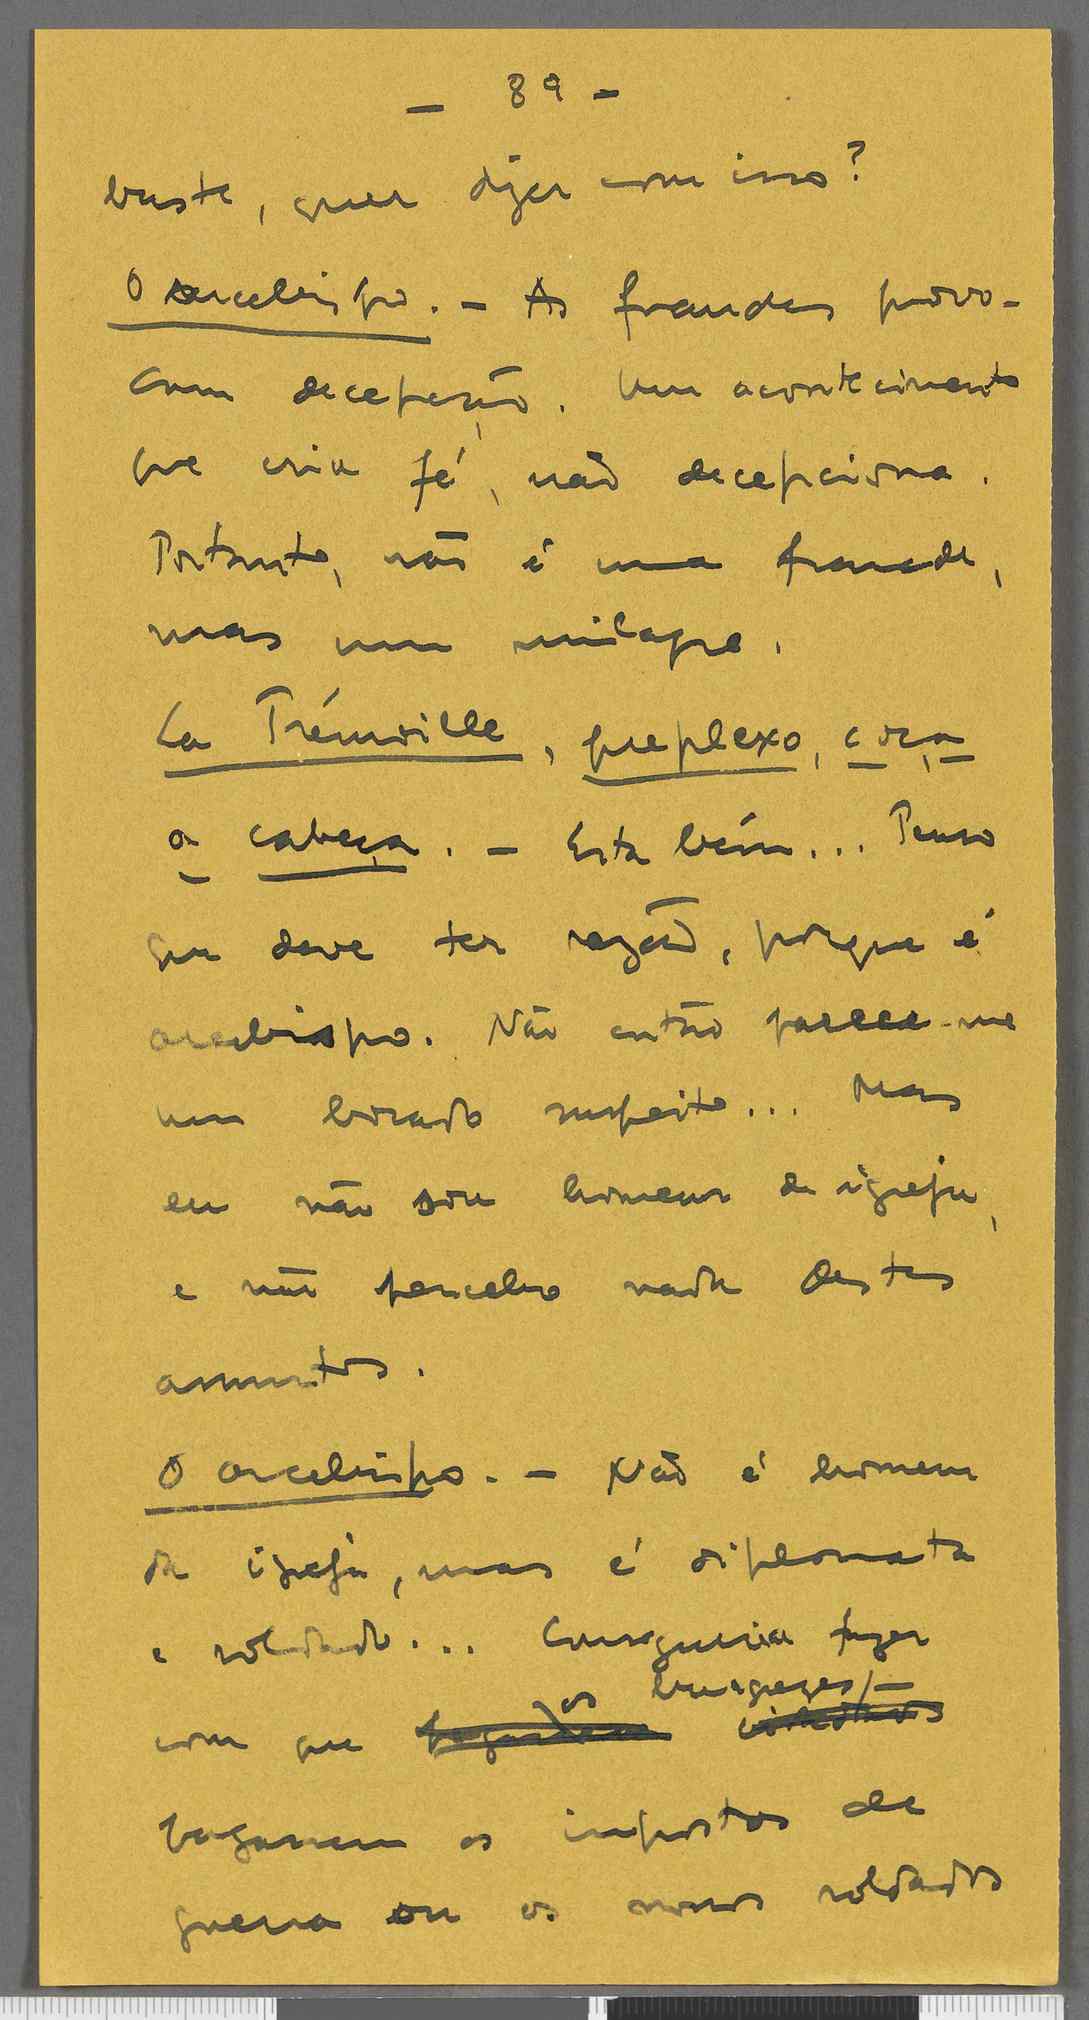 - 89 -
buste, quer dizer com isso?
O arcebispo. - As fraudes provo-
cam decepção. Um acontecimento
que cria fé, não decepciona.
Portanto, não é uma fraude,
mas um milagre.
La Trémoille, preplexo, coça
a cabeça. - Esta bém... Penso
que deve ter razão, porque é
arcebispo. Não então parece-me
um bocado suspeito... Mas
eu não sou homem de igreja,
e não percebo nada destes
assuntos.
O arcebispo. - Não é homem
da igreja, mas é diplomata
e soldado... Conseguiria fazer
os burgueses
com que
pagassem os impostos de
guerra ou os nossos soldados